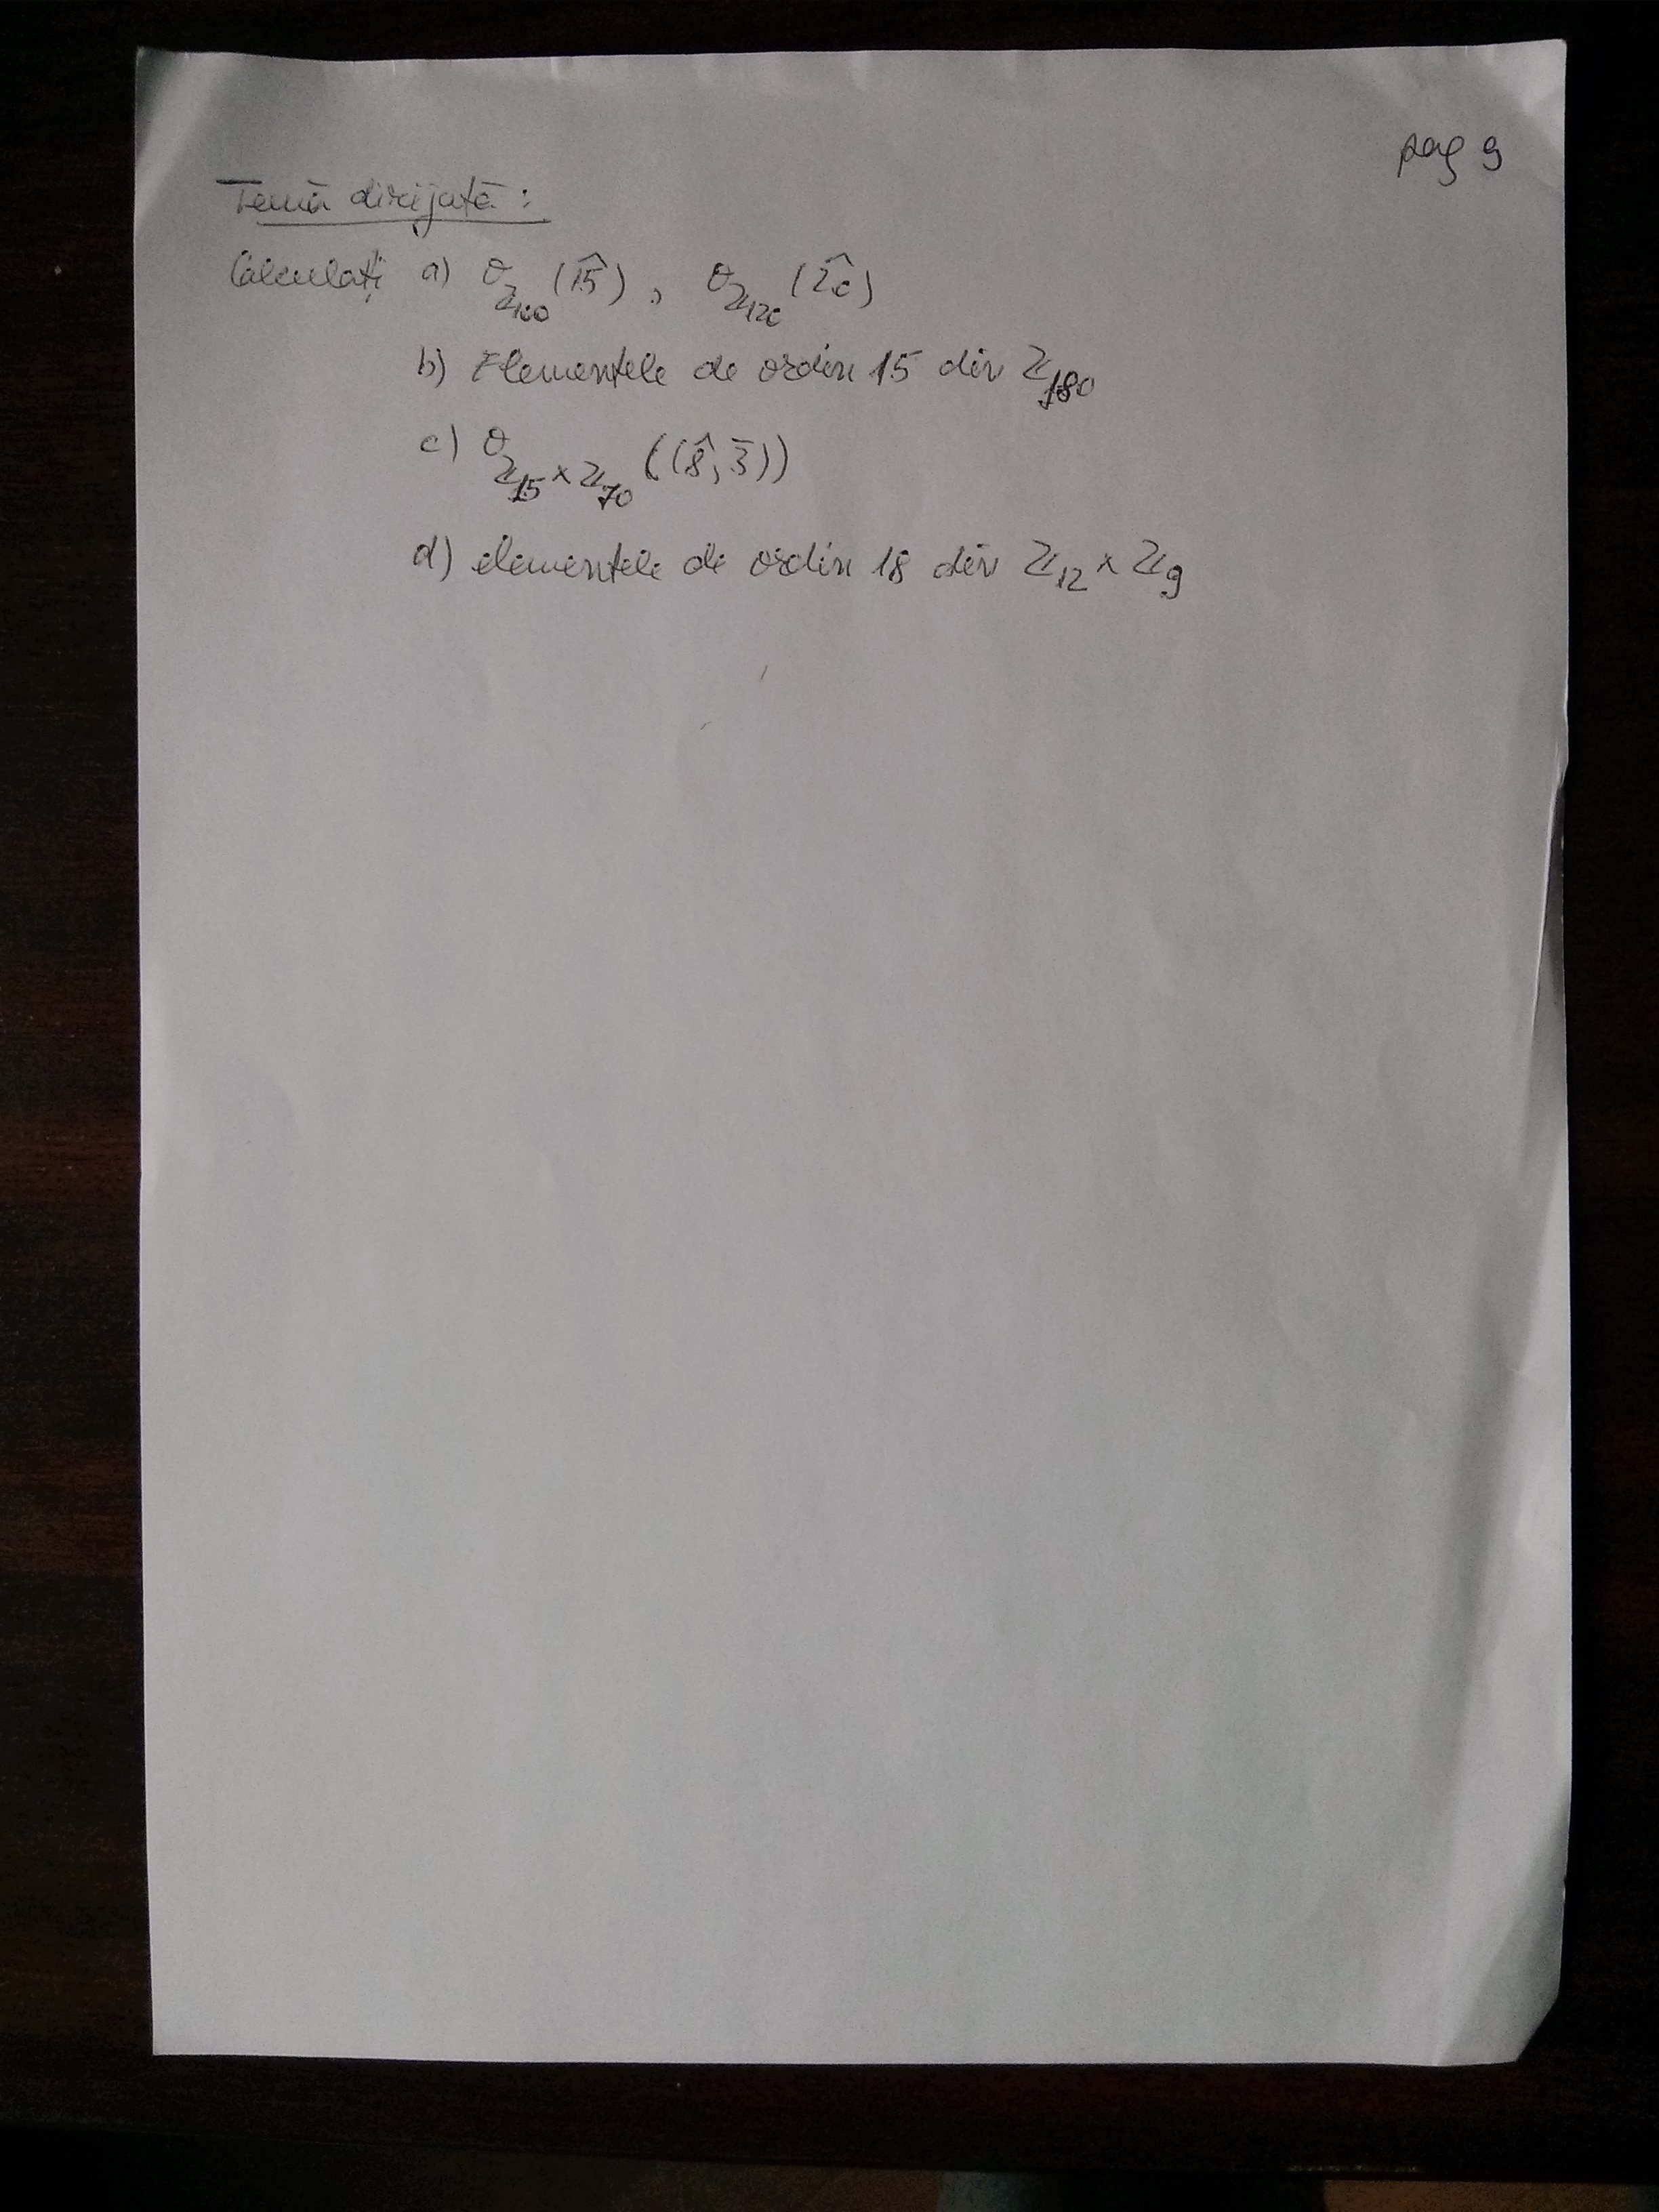 pag 9
Temă dirijată:
Calculați a) σ_Z₁₀₀ (1̂5̂), σ_Z₁₂₀ (2̂0̂)
b) Elementele de ordin 15 din Z₁₈₀
c) σ_Z₁₅ₓZ₇₀ ((8̂, 3̄))
d) elementele de ordin 18 din Z₁₂ × Z₉